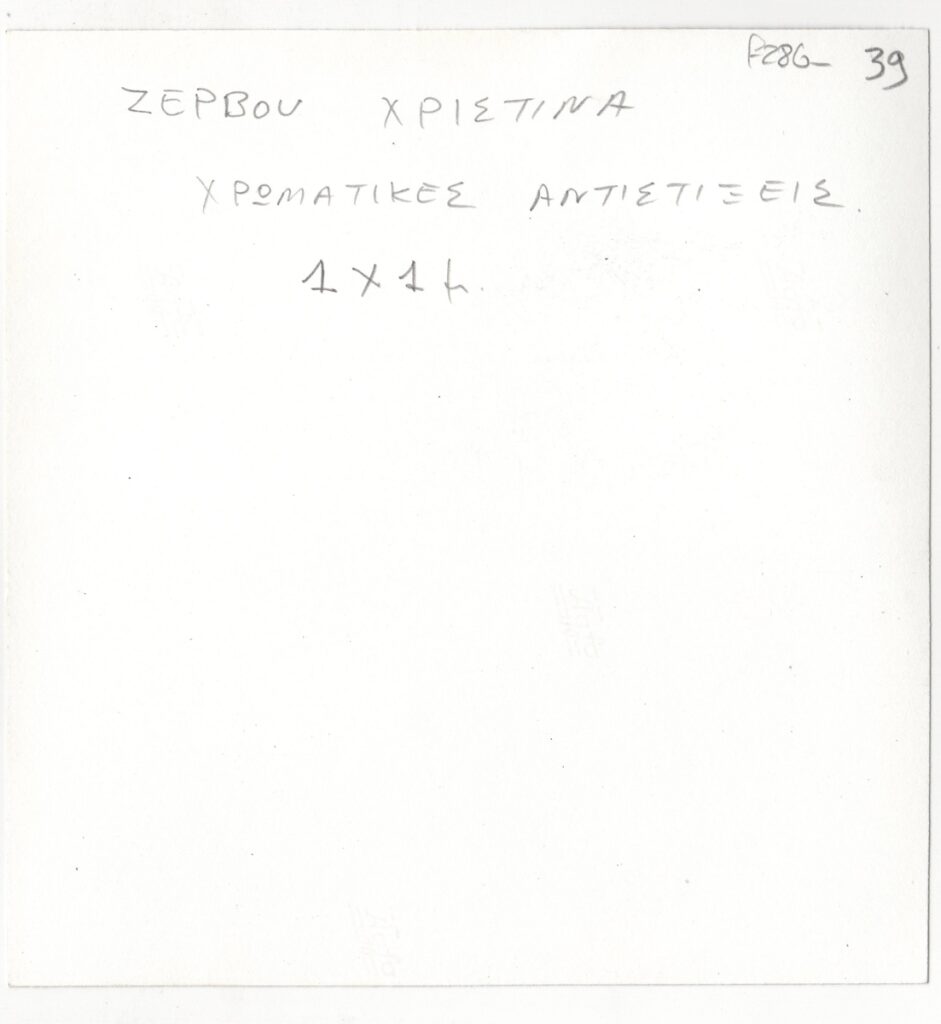 F286- 39
ΖΕΡΒΟΥ ΧΡΙΣΤΙΝΑ
ΧΡΩΜΑΤΙΚΕΣ ΑΝΤΙΣΤΙΞΕΙΣ.
1 Χ 1 μ.